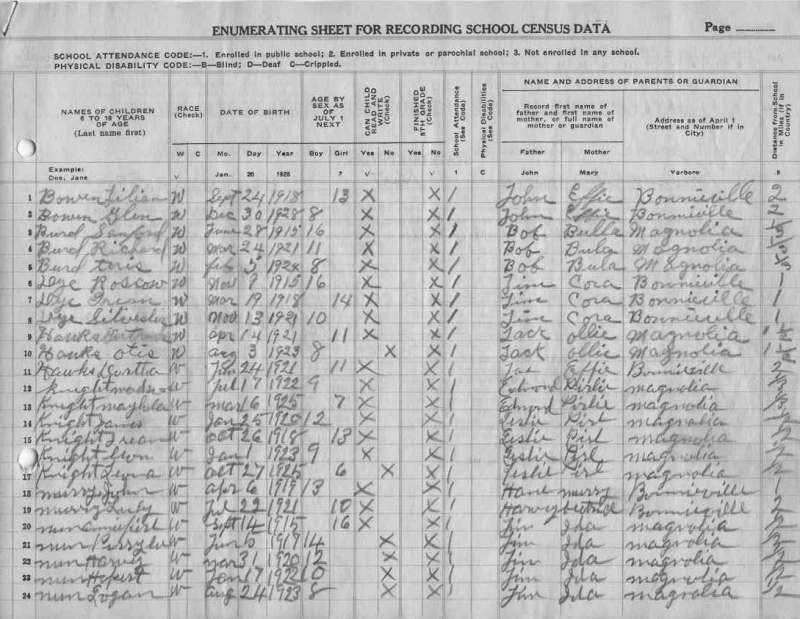 ENUMERATING SHEET FOR RECORDING SCHOOL CENSUS DATA Page
SCHOOL ATTENDANCE CODE:—1. Enrolled in public school; 2. Enrolled in private or parochial school; 3. Not enrolled in any school.
PHYSICAL DISABILITY CODE:—B—Blind; D—Deaf C—Crippled.
NAMES OF CHILDREN 6 TO 18 YEARS OF AGE (Last name first) RACE (Check) DATE OF BIRTH AGE BY SEX AS OF JULY 1 NEXT CAN CHILD READ AND WRITE (Check) FINISHED 8TH GRADE (Check) School Attendance (See Code) Physical Disabilities (See Code) NAME AND ADDRESS OF PARENTS OR GUARDIAN Distance from School in Miles (if in Country)
Record first name of father and first name of mother, or full name of mother or guardian Address as of April 1 (Street and Number if in City)
W C Mo. Day Year Boy Girl Yes No Yes No Father Mother
Example: Doe, Jane V Jan. 20 1925 7 V V 1 C John Mary
1 Bowen Lilian W Sept 24 1918 13 X X 1 John Effie Bonnieville 2
2 Bowen Glen W Dec 30 1923 8 X X 1 John Effie Bonnieville 2
3 Burd Sanford W June 28 1915 16 X X 1 Bob Bulla Magnolia
4 Burd Richard W Mar 24 1921 11 X X 1 Bob Bula Magnolia
5 Burd W Feb 5 1924 8 X X 1 Bob Bula Magnolia
6 Dye Roscow W Nov 9 1915 16 X X 1 Jim Cora Bonnieville 1
7 Dye W Mar 19 1918 14 X X 1 Jim Cora Bonnieville 1
8 Dye Silvester W Nov 13 1921 10 X X 1 Jim Cora Bonnieville 1
9 Hawks W apr 14 1921 11 X X 1 Jack ollie Magnolia 1 1/2
10 Hawks otis W aug 3 1923 8 X X 1 Jack ollie Magnolia 1 1/2
11 Hawks W Jan 24 1921 11 X X 1 Effie Bonnieville 2
12 Knight W Jul 17 1922 9 X X 1 magnolia
13 Knight W mar 6 1925 7 X X 1 magnolia
14 Knight James W Jan 25 1920 12 X X 1 Leslie Pirl magnolia 1/2
15 Knight W oct 26 1918 13 X X 1 Leslie Pirl magnolia 1/2
16 Knight W Jan 1 1923 9 X X 1 Leslie Pirl magnolia 1/2
17 Knight W oct 27 1925 6 X X 1 Leslie Pirl magnolia 1/2
18 murry John W apr 6 1919 13 X X 1 murry Bonnieville 1
19 murry W Jul 22 1921 10 X X 1 Bonnieville
20 nun W Sept 14 1915 16 X X 1 Jim Ida magnolia 1/2
21 nun W Jun 5 1917 14 X X 1 Jim Ida magnolia 1/2
22 nun Harvey W mar 31 1920 12 X X 1 Jim Ida magnolia 1/2
23 nun W Jan 17 10 X X 1 Jim Ida magnolia
24 nun Logan W aug 24 1923 8 X X 1 Ida magnolia 1/2